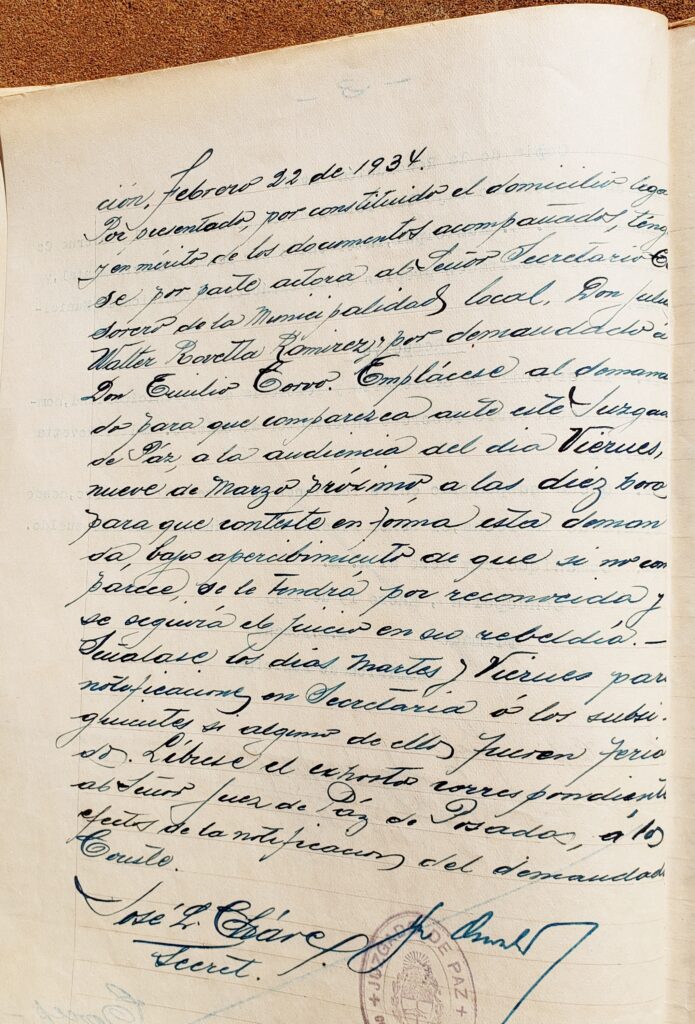 ción, Febrero 22 de 1934.
Por presentado, por constituido el domicilio lega
y en mérito de los documentos acompañados, téng
se por parte actora al Señor Secretario
sorero de la Municipalidad local, Don Juli
Walter Rovetta Ramirez, y por demandado á
Don Emilio Torvo. Emplácese al deman
do para que comparezca ante este Juzga
de Páz, a la audiencia del dia Viernes,
nueve de Marzo próximo a las diez hora
para que conteste en forma esta deman
da, bajo apercibimiento de que si no com
parece, se le tendrá por reconocida y
se seguirá el juicio en su rebeldía.-
Señálase los días Martes y Viernes par
notificaciones en Secretaría ó los subsi-
guientes si alguno de ellos fueren feria
do. Líbrese el exhorto correspondient
al Señor Juez de Páz de Posadas, á los
efectos de la notificacion del demandad
Conste.
José L. Cháve
Secret.
JUZGADO DE PAZ